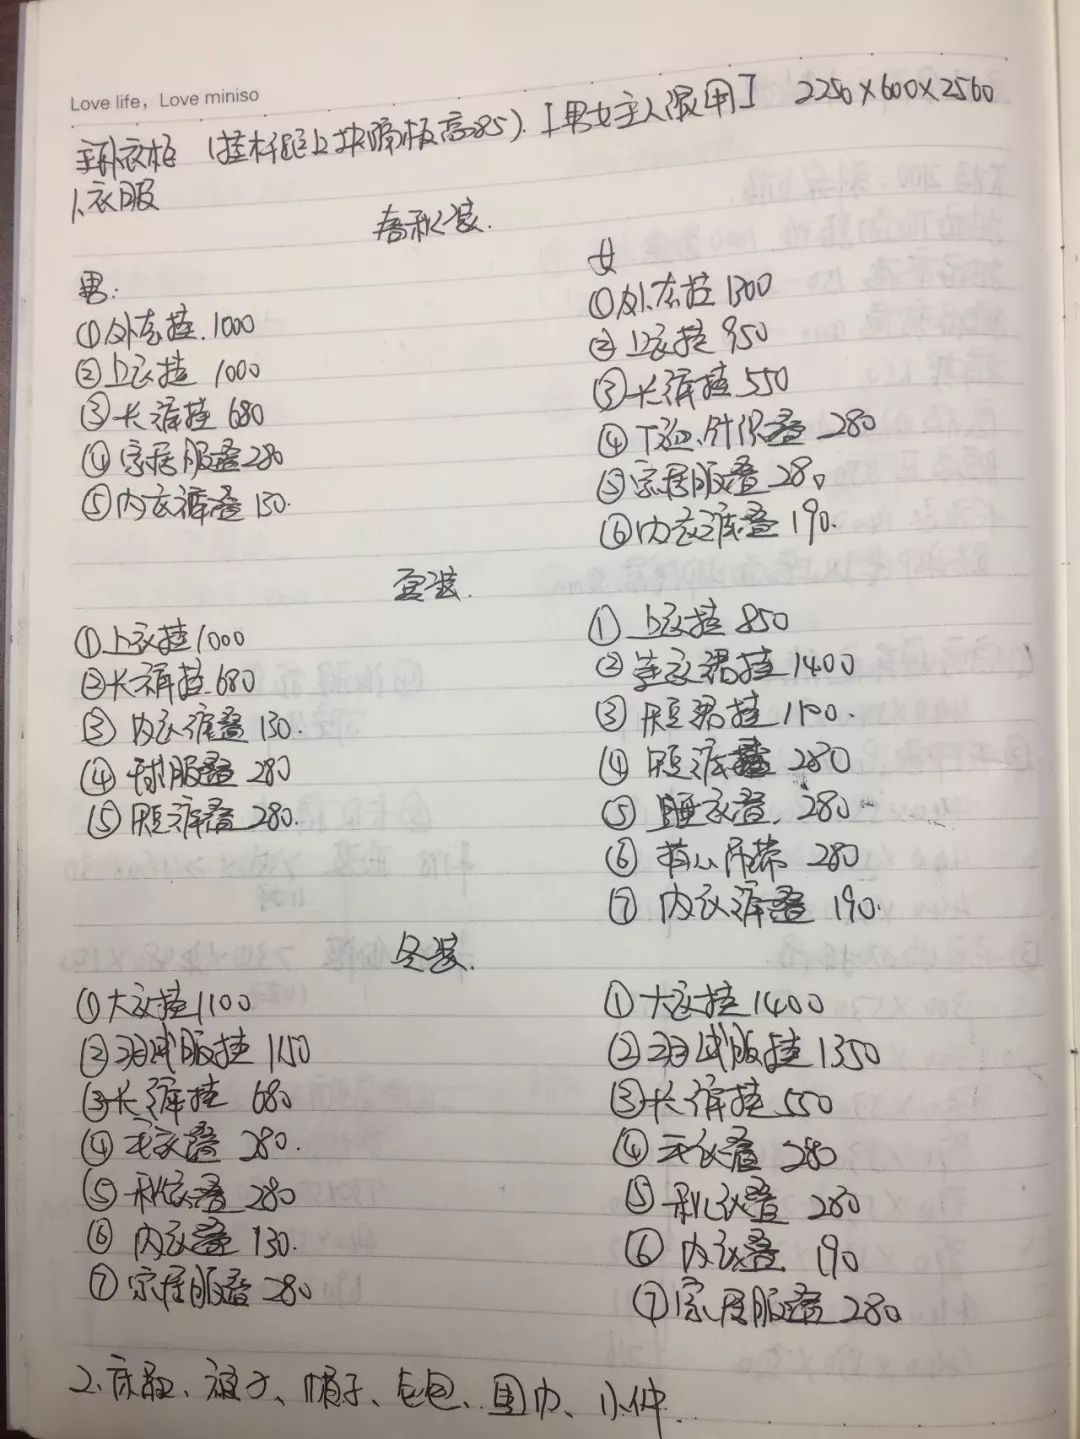 Love life, Love miniso
主卧衣柜 (挂杆距上块隔板高285). [男女主人混用] 2250×600×2560
1、衣服
春秋装.
男:
①外套挂.1000
②上衣挂 1000
③长裤挂 680
④家居服叠280
⑤内衣裤叠 130.
女
①外套挂 1300
②上衣挂 950
③长裤挂 550
④T恤、针织叠 280
⑤家居服叠 280
⑥内衣裤叠 190.
夏装.
①上衣挂1000
②长裤挂.680
③内衣裤叠130.
④球服叠 280
⑤短裤叠 280.
①上衣挂 850
②连衣裙挂 1400
③短裙挂 1100.
④短裤叠 280
⑤睡衣叠. 280
⑥背心吊带 280
⑦内衣裤叠 190.
冬装.
①大衣挂1100
②羽绒服挂 1150
③长裤挂 680
④毛衣叠 280.
⑤秋衣叠 280
⑥内衣叠 130.
⑦家居服叠 280
①大衣挂1400
②羽绒服挂1350
③长裤挂 550
④毛衣叠 280
⑤秋衣叠 280
⑥内衣叠. 190
⑦家居服叠 280
2、床品、被子、帽子、包包、围巾、小件.